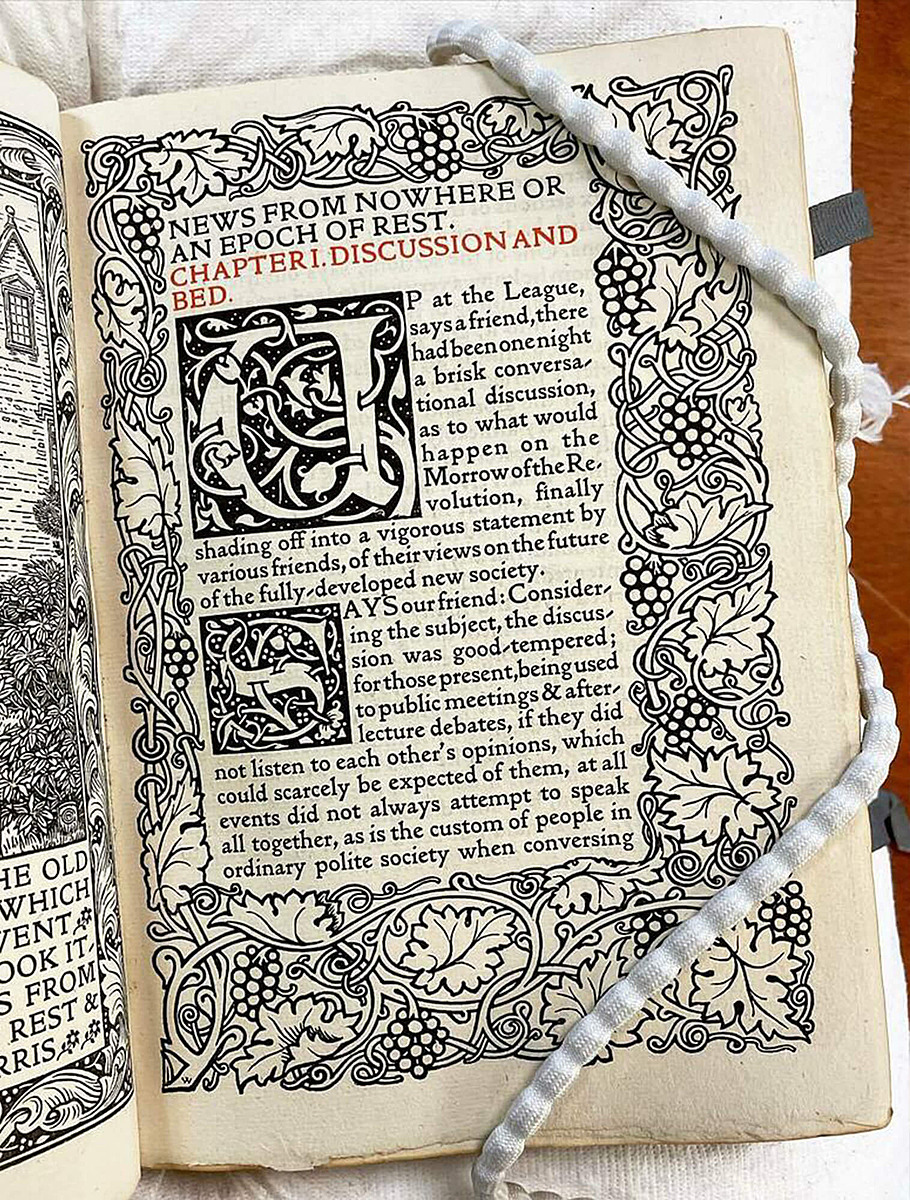 HE OLD
WHICH
VENT
OOK IT-
S FROM
REST &
RRIS
NEWS FROM NOWHERE OR
AN EPOCH OF REST.
CHAPTER I. DISCUSSION AND
BED.
UP at the League,
says a friend, there
had been one night
a brisk conversa-
tional discussion,
as to what would
happen on the
Morrow of the Re-
volution, finally
shading off into a vigorous statement by
various friends, of their views on the future
of the fully-developed new society.
SAYS our friend: Consider-
ing the subject, the discus-
sion was good-tempered;
for those present, being used
to public meetings & after-
lecture debates, if they did
not listen to each other's opinions, which
could scarcely be expected of them, at all
events did not always attempt to speak
all together, as is the custom of people in
ordinary polite society when conversing